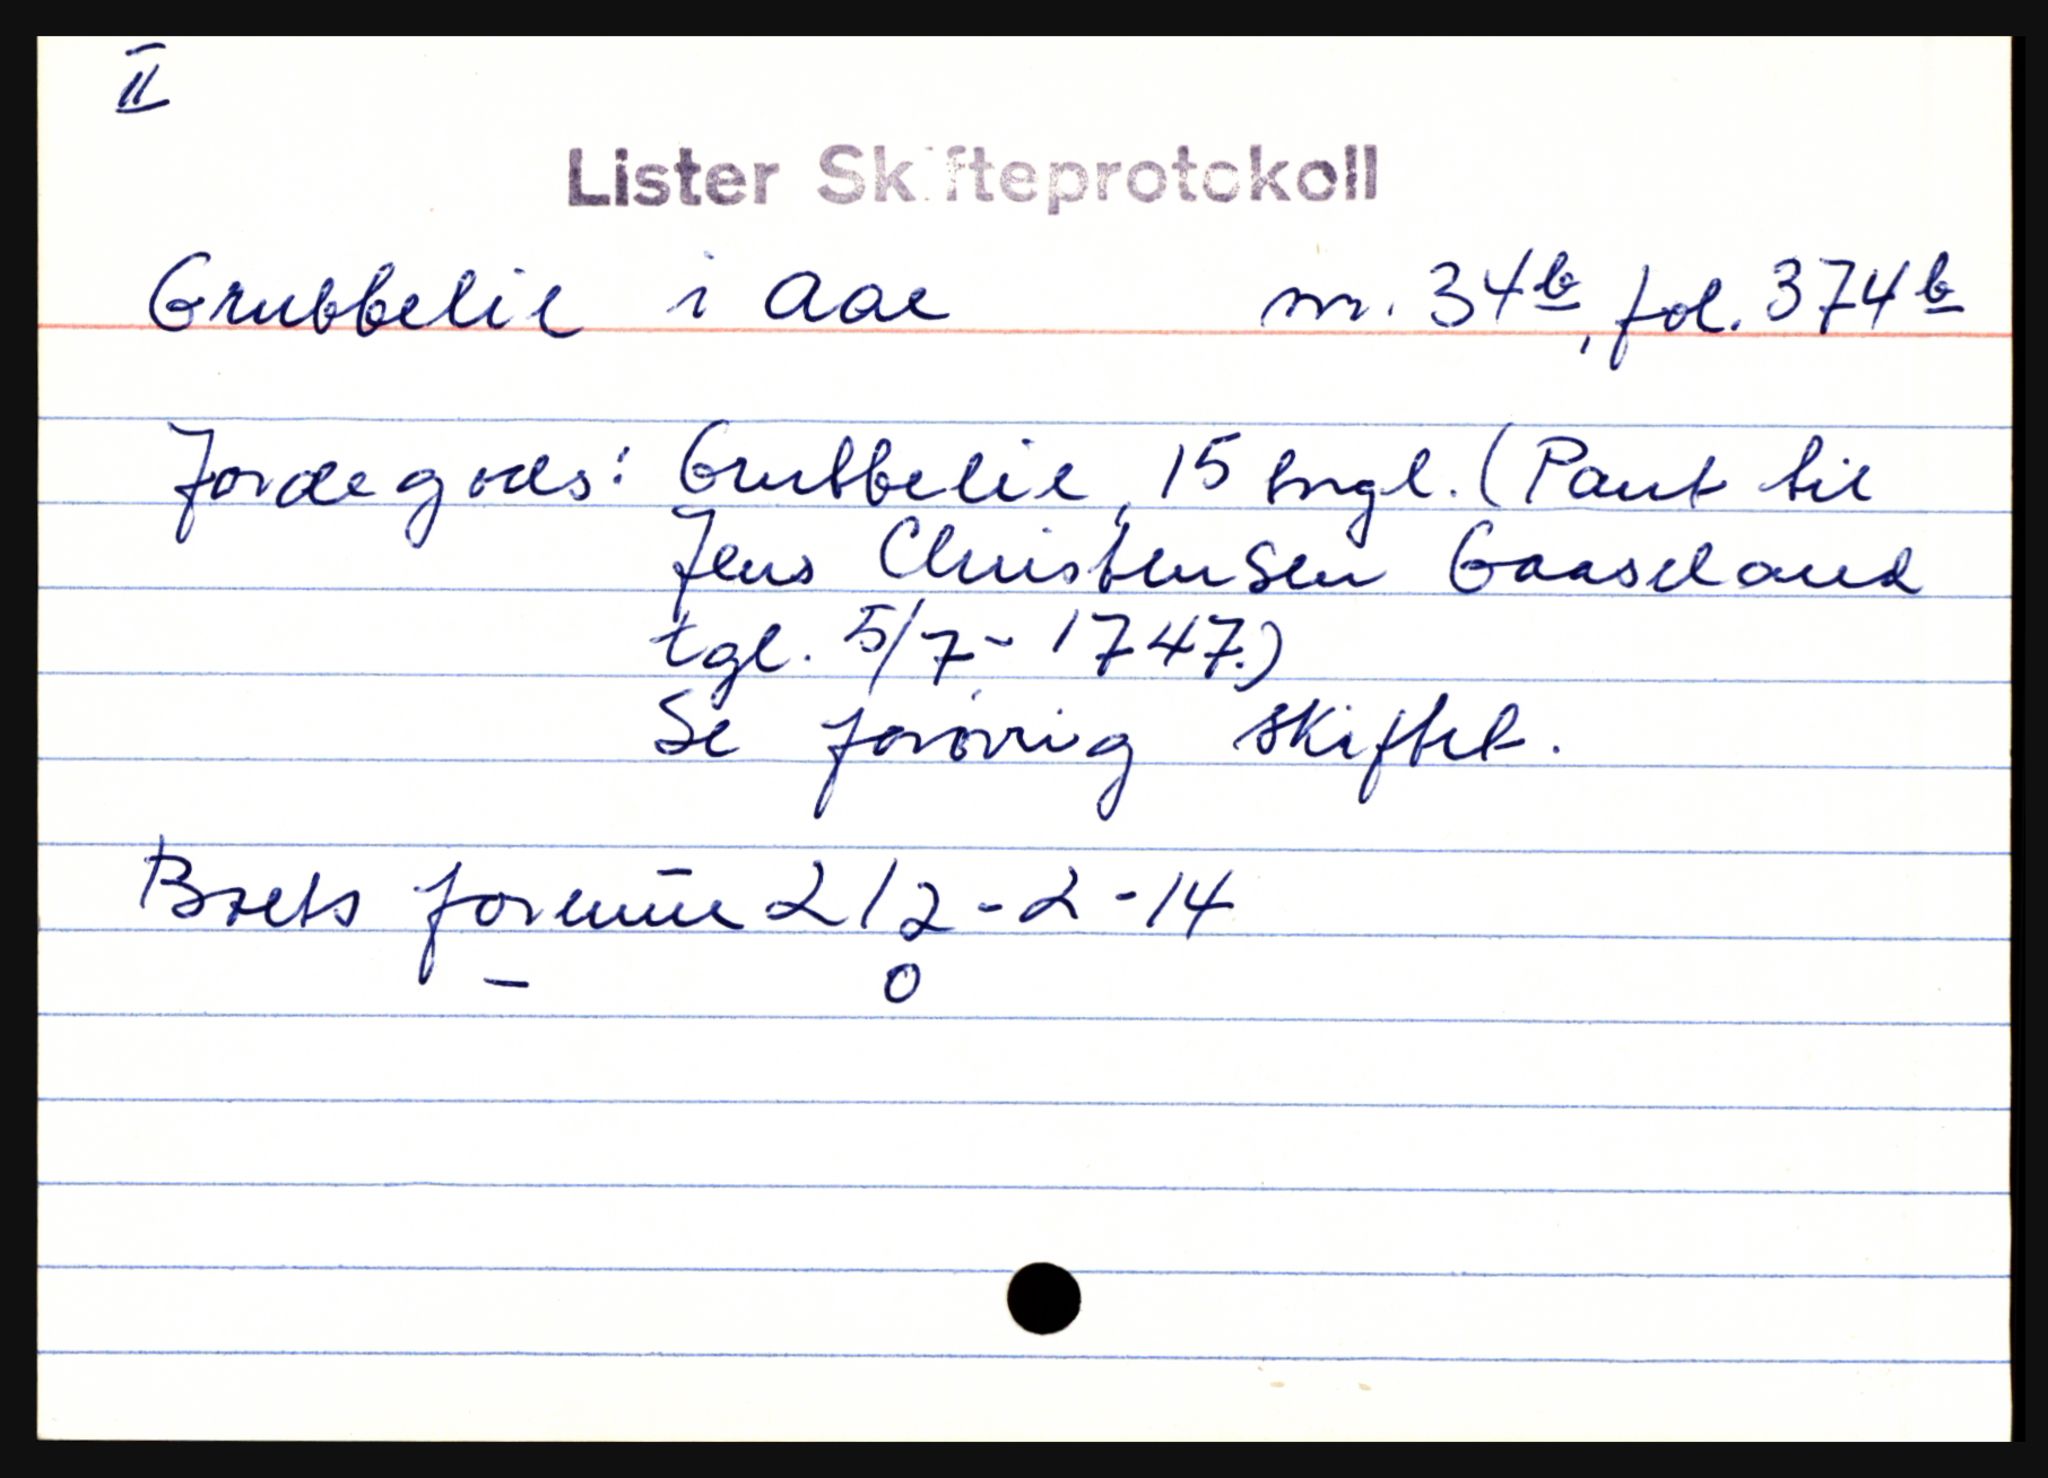 II
Lister Skifteprotokoll
Grubbelie i Aae nr. 34b, fol. 374b
Jordegods: Grubbelie, 15 engl. (Pant til
Jens Christensen Gaaseland
tgl. 5/7 - 1747.)
Se forøvrig skiftet.
Boets formüe 212 - 2 - 14
— 0